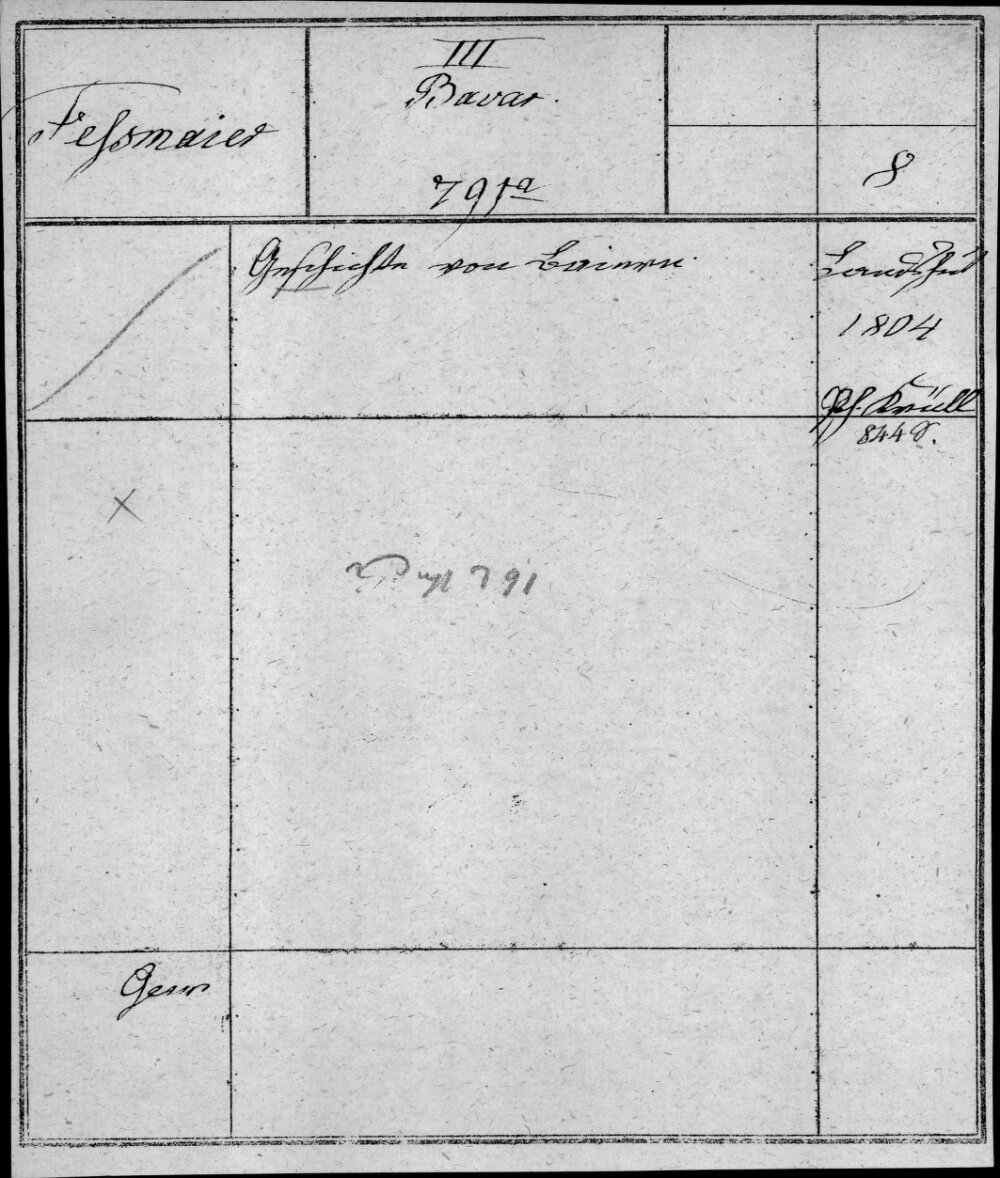 Fessmaier
III
Bavar.
791a
8
Geschichte von Baiern.
Landshut
1804
Ph. Krüll
844 S.
791